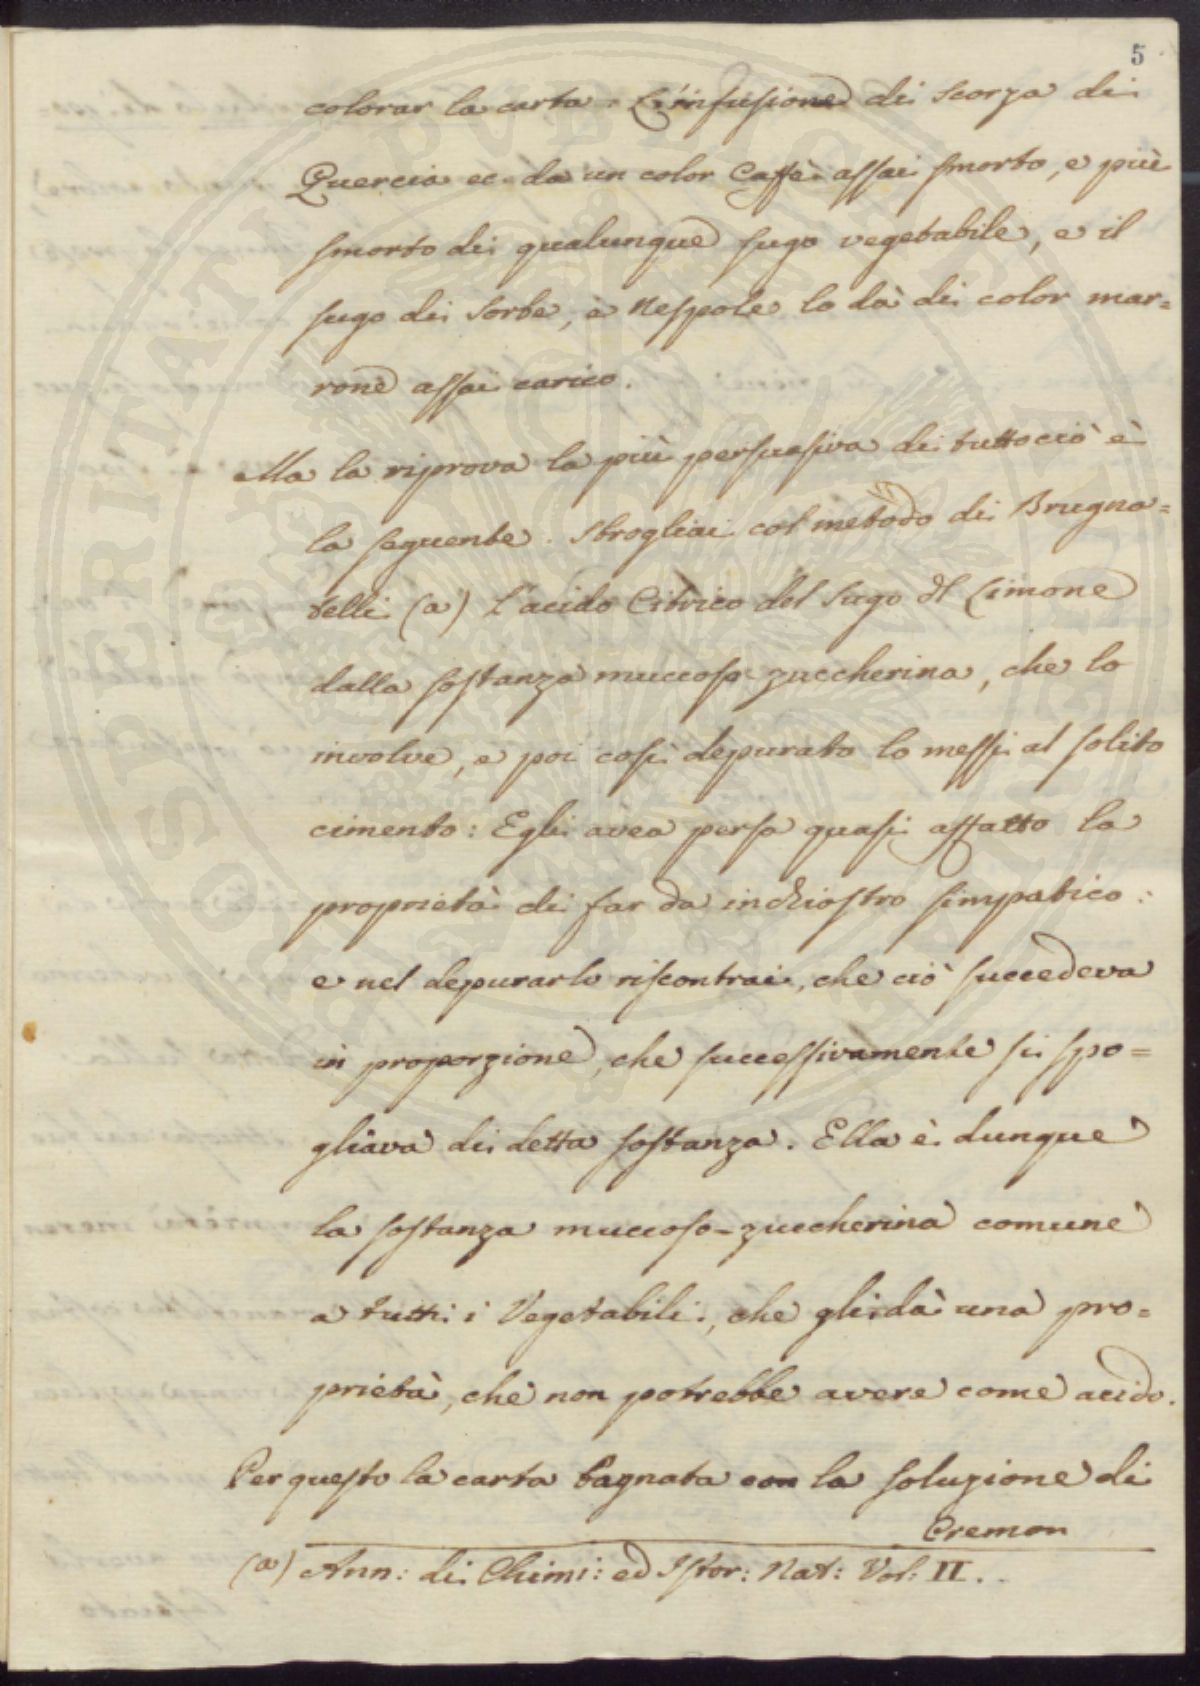 5
colorar la carta. L'infusione di Scorza di
Quercia ec. da un color Caffè assai smorto, e più
smorto di qualunque sugo vegetabile, e il
sugo di Sorbe, e Nespole lo dà di color mar=
rone assai carico.
Ma la riprova la più persuasiva di tuttociò è
la seguente. Sbrogliai col metodo di Brugna=
telli (a) l'acido Citrico del Sugo di Limone
dalla sostanza muccoso zuccherina, che lo
involve, e poi così depurato lo messi al solito
cimento: Egli avea perso quasi affatto la
proprietà di far da inchiostro simpatico:
e nel depurarlo riscontrai, che ciò succedeva
in proporzione, che successivamente si spo=
gliava di detta sostanza. Ella è dunque
la sostanza muccoso-zuccherina comune
a tutti i Vegetabili, che gli dà una pro=
prietà, che non potrebbe avere come acido.
Per questo la carta bagnata con la soluzione di
Cremon
(a) Ann: di Chimi: ed Istor: Nat: Vol: II.
PROSPERITATI PUBLICAE AUGENDAE